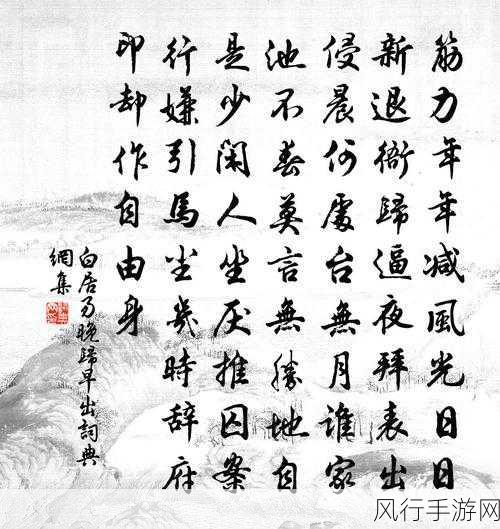 筋力年年減風光日日
新退衙歸逼夜拜表出
侵晨何處台無月誰家
池不春莫言無勝地自
是少閑人坐厌推囚案
行嫌引馬尘幾時辞府
印却作自由身
白居易晚歸早出詞典
網集
风行手游网